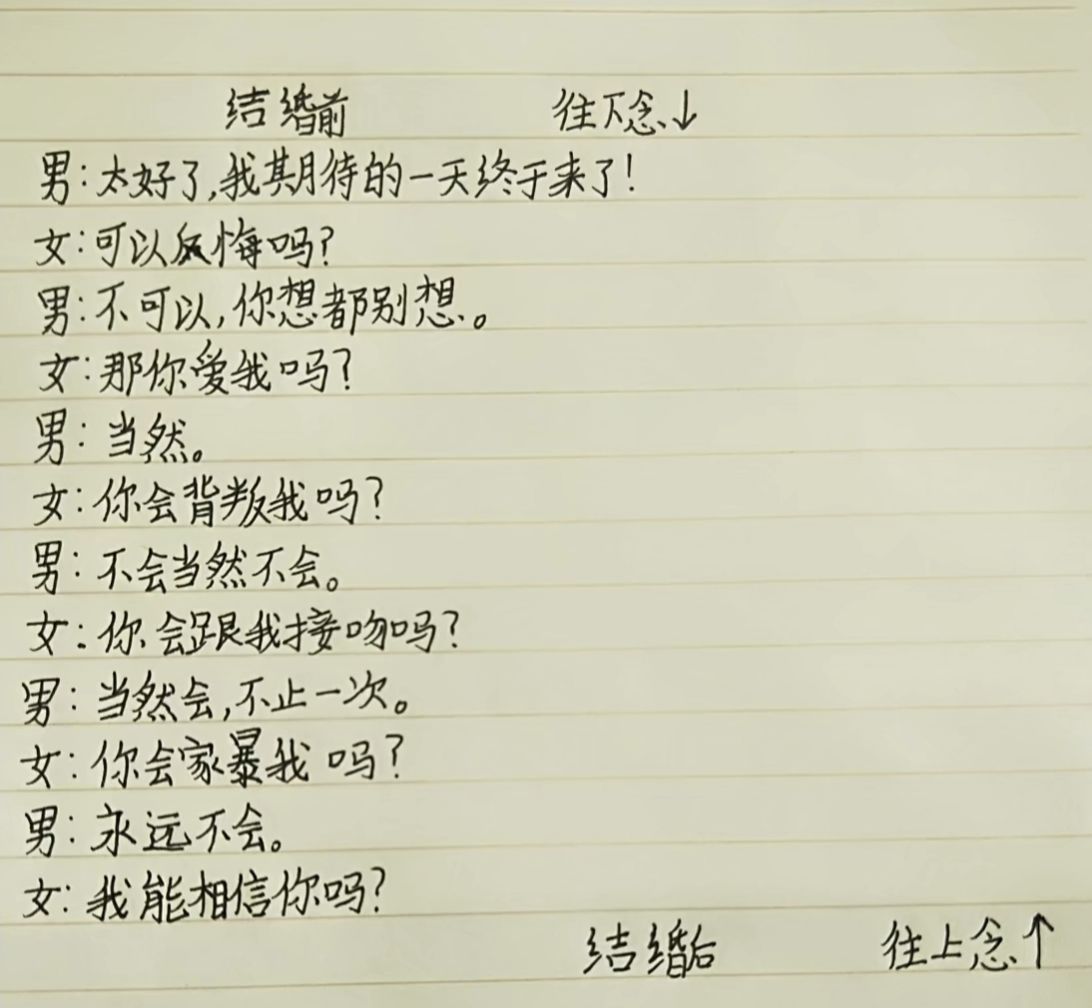 结婚前 往下念↓
男:太好了,我期待的一天终于来了!
女:可以反悔吗?
男:不可以,你想都别想。
女:那你爱我吗?
男:当然。
女:你会背叛我吗?
男:不会当然不会。
女:你会跟我接吻吗?
男:当然会,不止一次。
女:你会家暴我吗?
男:永远不会。
女:我能相信你吗?
结婚后 往上念↑